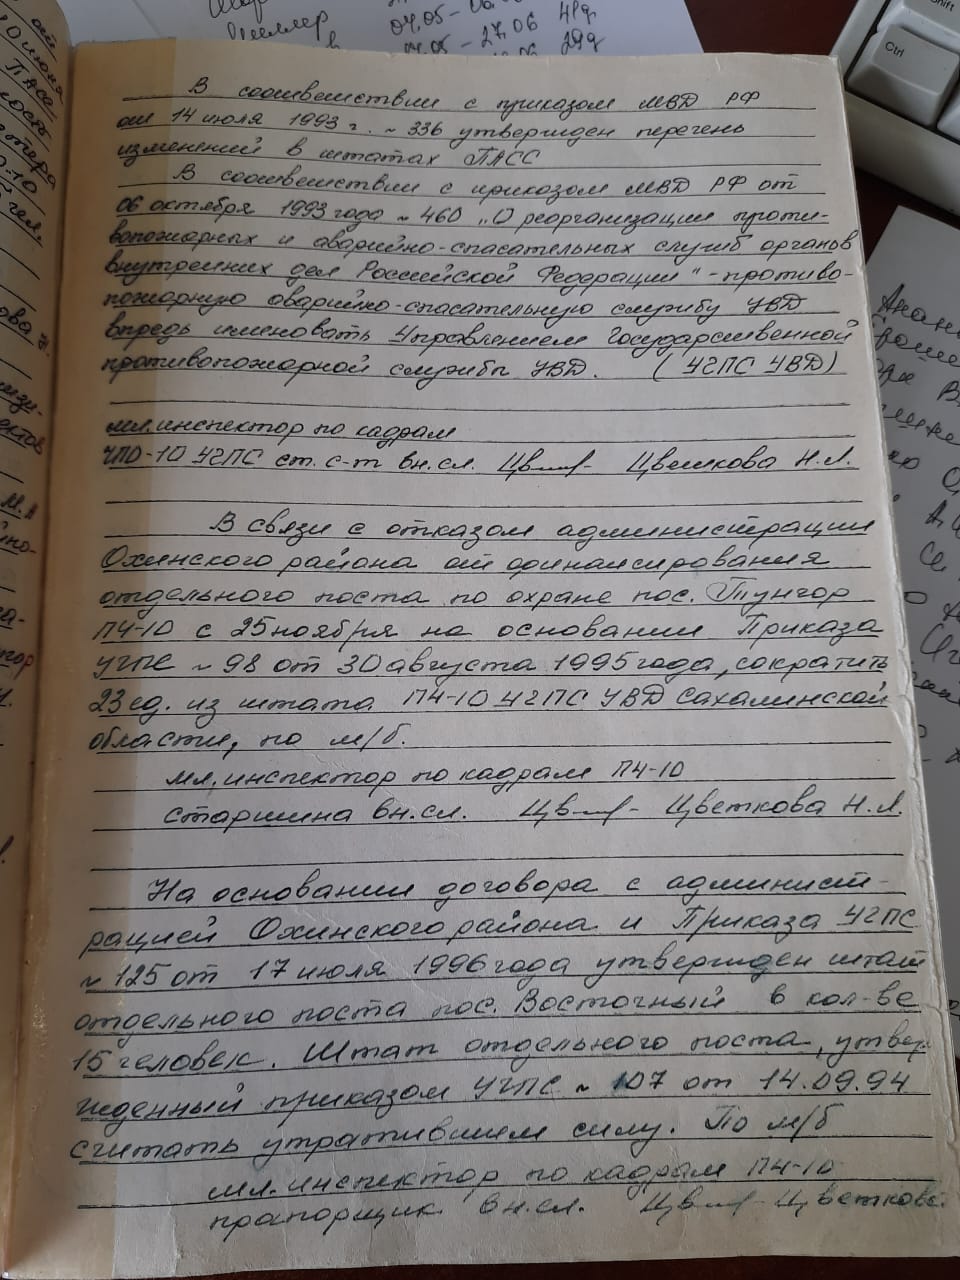 В соответствии с приказом МВД РФ
от 14 июля 1993 г. № 336 утвержден перечень
изменений в штатах ПАСС
В соответствии с приказом МВД РФ от
06 октября 1993 года № 460 „О реорганизации проти-
вопожарных и аварийно-спасательных служб органов
внутренних дел Российской Федерации" - противо-
пожарную аварийно-спасательную службу УВД
впредь именовать Управлением Государственной
противопожарной службы УВД. (УГПС УВД)
мл. инспектор по кадрам
ЧПО-10 УГПС ст. с-т вн. сл. Цветкова Н.Л.
В связи с отказом администрации
Охинского района от финансирования
отдельного поста по охране пос. Тунгор
ПЧ-10 с 25 ноября на основании Приказа
УГПС № 98 от 30 августа 1995 года, сократить
23 ед. из штата ПЧ-10 УГПС УВД Сахалинской
области, по м/б.
мл. инспектор по кадрам ПЧ-10
старшина вн. сл. Цветкова Н.Л.
На основании договора с админист-
рацией Охинского района и Приказа УГПС
№ 125 от 17 июля 1996 года утвержден штат
отдельного поста пос. Восточный в кол-ве
15 человек. Штат отдельного поста, утвер-
жденный приказом УГПС № 107 от 14.09.94
считать утратившим силу. По м/б
мл. инспектор по кадрам ПЧ-10
прапорщик вн. сл. Цветкова
Ctrl
Shift